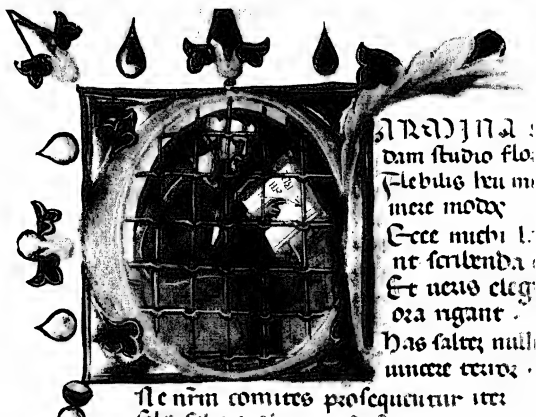 CARMINA
dam studio flo
Flebilis heu me
inire modos
Ecce michi l
nt scribenda
Et ueris eleg
ora rigant .
Has saltez null
uincere terror .
Ne nr̄m comites prosequerentur iter